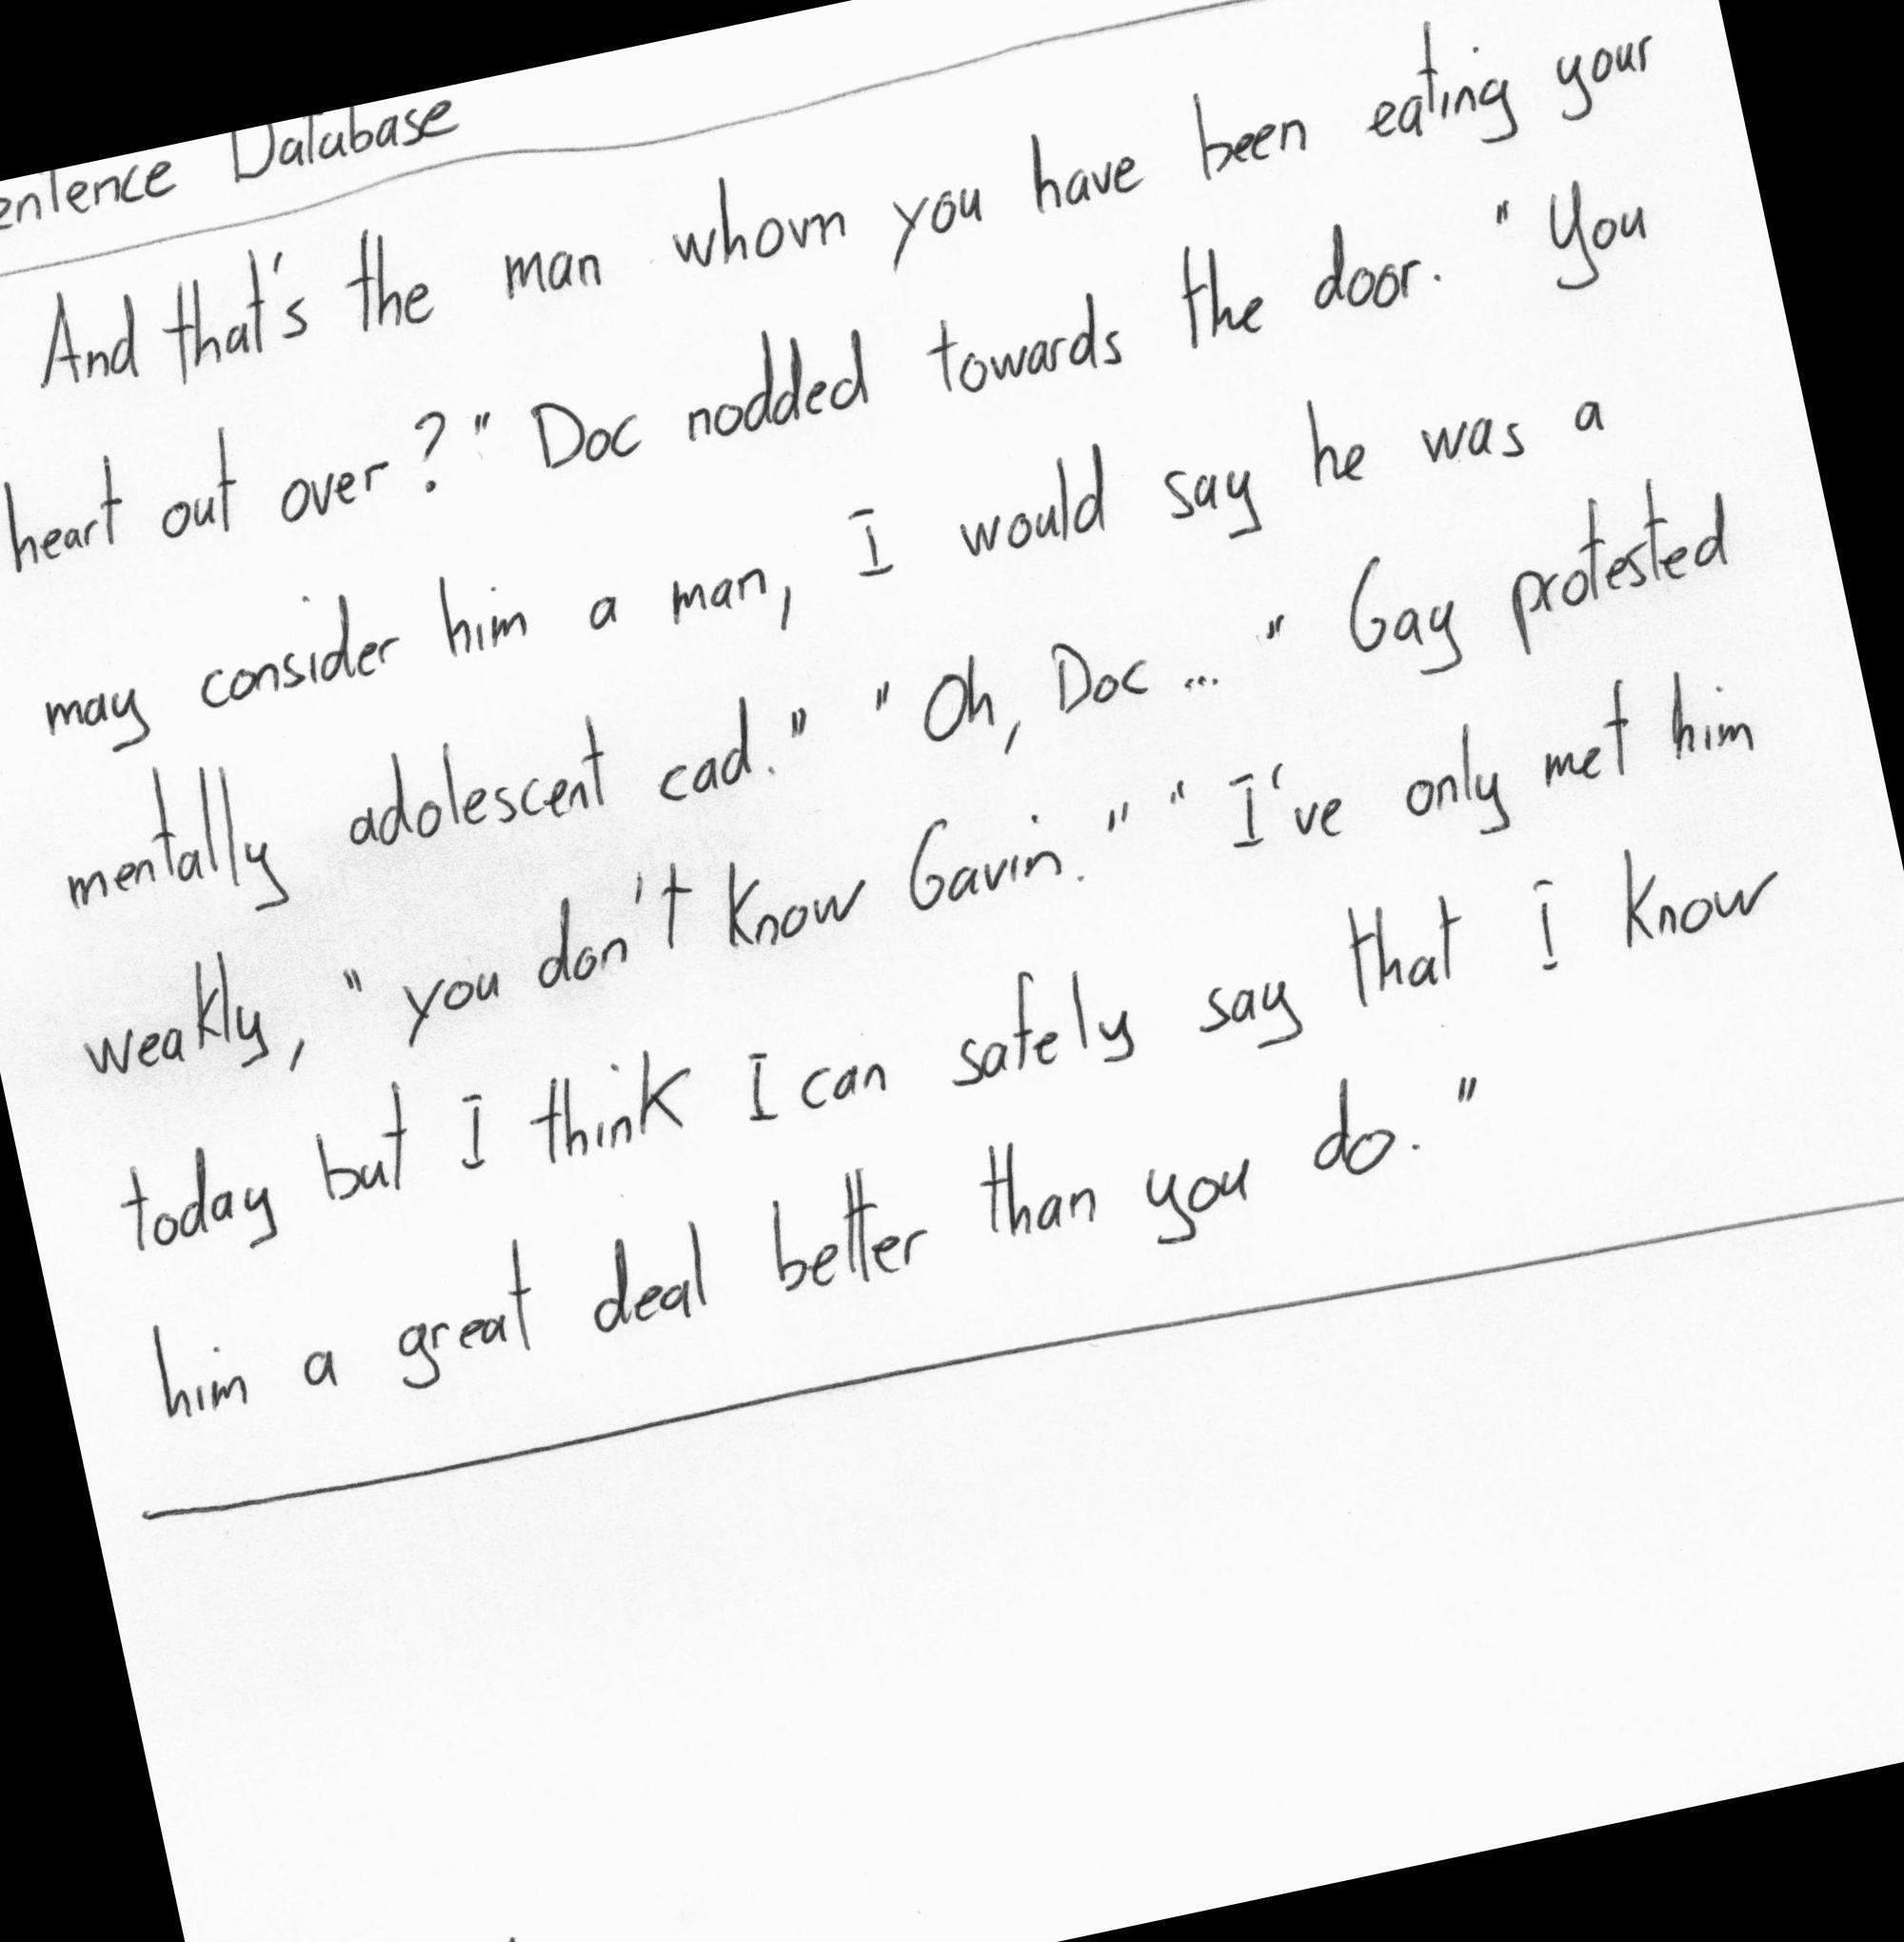 Database
And that's the man whom you have been eating your
heart out over?" Doc nodded towards the door. "You
may consider him a man, I would say he was a
mentally adolescent cad." "Oh, Doc..." Gay protested
weakly, "you don't know Gavin." "I've only met him
today but I think I can safely say that I know
him a great deal better than you do."